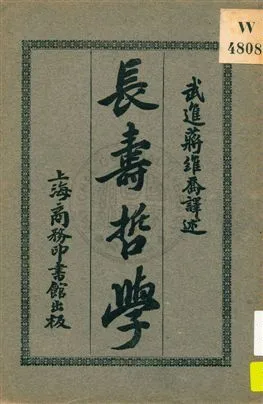 W
4808
武進蔣維喬譯述
長壽哲學
上海商務印書館出版